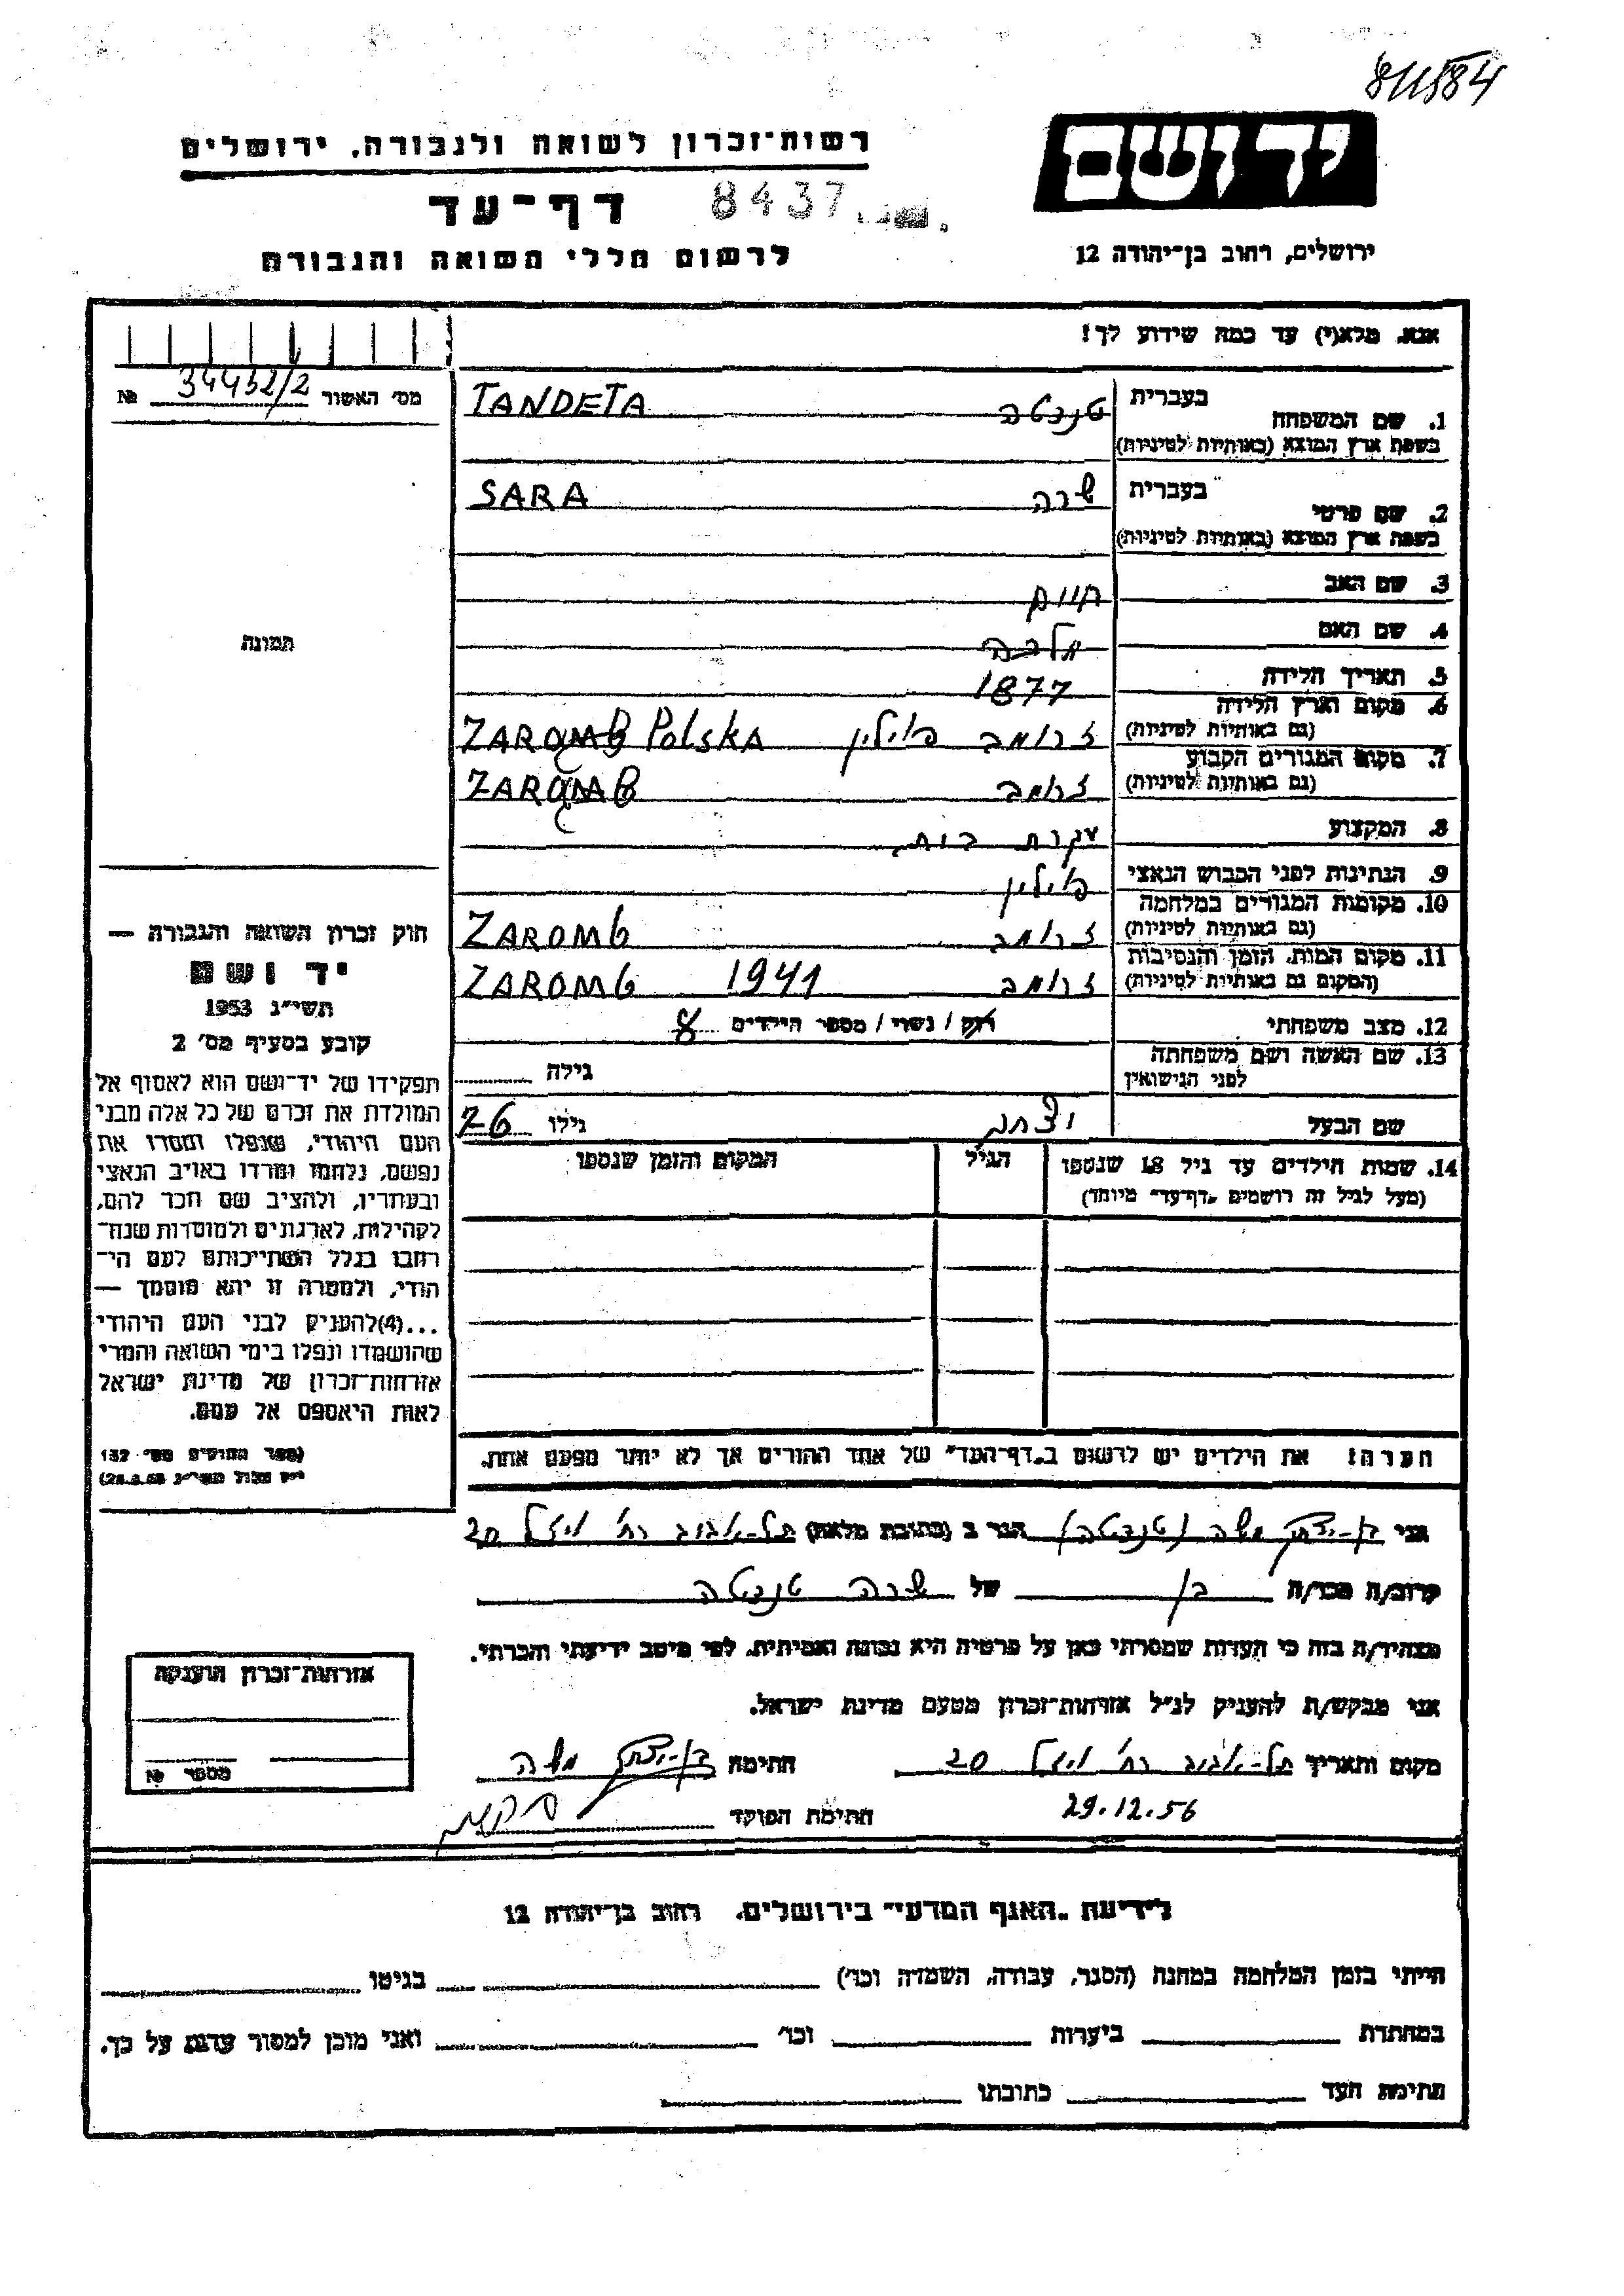 811584
יד ושם
רשות־זכרון לשואה ולגבורה, ירושלים
דף־עד 8437
ירושלים, רחוב בן־יהודה 12
לרשום חללי השואה והגבורה
אנא, מלא(י) עד כמה שידוע לך!
מס׳ האשור 34432/2 №
1. שם המשפחה בעברית טנדטה TANDETA
בשפת ארץ המוצא (באותיות לטיניות)
2. שם פרטי בעברית שרה SARA
בשפת ארץ המוצא (באותיות לטיניות)
3. שם האב חיים
4. שם האם מלכה
תמונה
5. תאריך הלידה 1877
6. מקום וארץ הלידה
(גם באותיות לטיניות) זרומב פולין ZAROMB Polska
7. מקום המגורים הקבוע
(גם באותיות לטיניות) זרומב ZAROMB
8. המקצוע עקרת בית
9. הנתינות לפני הכבוש הנאצי פולין
10. מקומות המגורים במלחמה
(גם באותיות לטיניות) זרומב ZAROMB
11. מקום המות, הזמן והנסיבות
(המקום גם באותיות לטיניות) זרומב 1941 ZAROMB
12. מצב משפחתי רוק / נשוי / מספר הילדים 8
13. שם האשה ושם משפחתה
לפני הנישואין גילה
שם הבעל יצחק גילו 76
14. שמות הילדים עד גיל 18 שנספו הגיל המקום והזמן שנספו
(מעל לגיל זה רושמים „דף־עד״ מיוחד)
חוק זכרון השואה והגבורה —
יד ושם
תשי״ג 1953
קובע בסעיף מס׳ 2
תפקידו של יד־ושם הוא לאסוף אל
המולדת את זכרם של כל אלה מבני
העם היהודי, שנפלו ומסרו את
נפשם, נלחמו ומרדו באויב הנאצי
ובעוזריו, ולהציב שם וזכר להם,
לקהילות, לארגונים ולמוסדות שנח־
רבו בגלל השתייכותם לעם הי־
הודי, ולמטרה זו יהא מוסמך —
...(4) להעניק לבני העם היהודי
שהושמדו ונפלו בימי השואה והמרי
אזרחות־זכרון של מדינת ישראל
לאות היאספם אל עמם.
(ספר החוקים מס׳ 132
הערה! את הילדים יש לרשום ב„דף־העד״ של אחד ההורים אך לא יותר מפעם אחת.
אני בן-יצחק משה (טנדטה) הגר ב (כתובת מלאה) תל-אביב רח׳ 20
קרוב/ה מכר/ה בן של שרה טנדטה
מצהיר/ה בזה כי העדות שמסרתי כאן על פרטיה היא נכונה ואמיתית, לפי מיטב ידיעתי והכרתי.
אני מבקש/ת להעניק לנ״ל אזרחות־זכרון מטעם מדינת ישראל.
מקום ותאריך תל-אביב רח׳ 20 חתימה בן-יצחק משה
29.12.56 חתימת הפוקד
אזרחות־זכרון הוענקה
מספר №
לידיעת „האגף המדעי״ בירושלים, רחוב בן־יהודה 12
הייתי בזמן המלחמה במחנה (הסגר, עבודה, השמדה וכו׳) בגיטו
במחתרת ביערות וכו׳ ואני מוכן למסור עדות על כך.
חתימת העד כתובתו